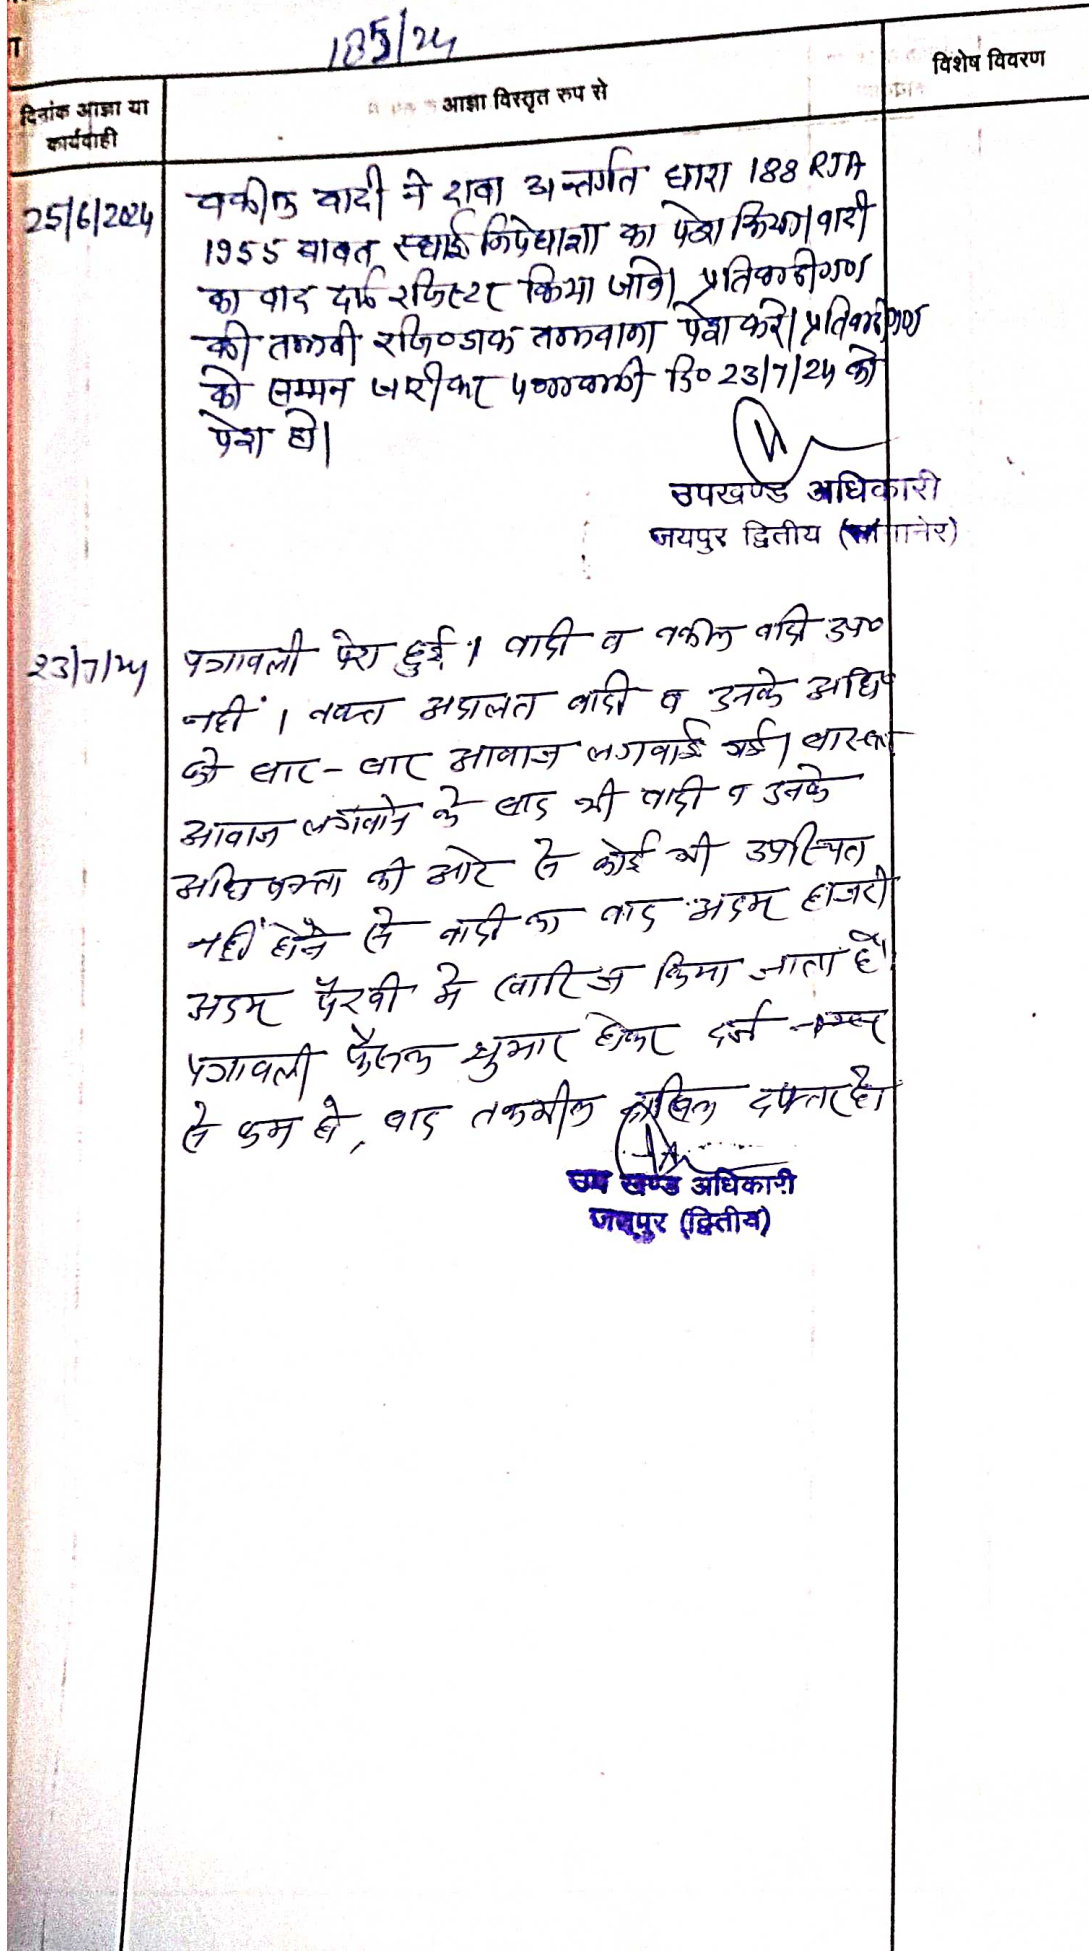 185/24
दिनांक आज्ञा या
कार्यवाही
आज्ञा विस्तृत रुप से
विशेष विवरण
25/6/2024
वकील वादी ने दावा अन्तर्गत धारा 188 RTA
1955 बाबत स्थाई निषेधाज्ञा का पेश किया। वादी
का वाद दर्ज रजिस्टर किया जावे। प्रतिवादीगण
की तलबी रजि० डाक तलवाना पेश करे। प्रतिवादीगण
को सम्मन जारी कर पत्रावली दि० 23/7/24 को
पेश हो।
उपखण्ड अधिकारी
जयपुर द्वितीय (सांगानेर)
23/7/24
पत्रावली पेश हुई। वादी व वकील वादी उप०
नहीं। वक्त अदालत वादी व उनके अधि०
को बार-बार आवाज लगवाई गई। बारम्बार
आवाज लगवाने के बाद भी वादी व उनके
अधिवक्ता की ओर से कोई भी उपस्थित
नहीं होने से वादी का वाद अदम हाजरी
अदम पैरवी में खारिज किया जाता है।
पत्रावली फैसल शुमार होकर दर्ज नम्बर
से कम हो, बाद तकमील दाखिल दफ्तर हो
उप खण्ड अधिकारी
जयपुर (द्वितीय)